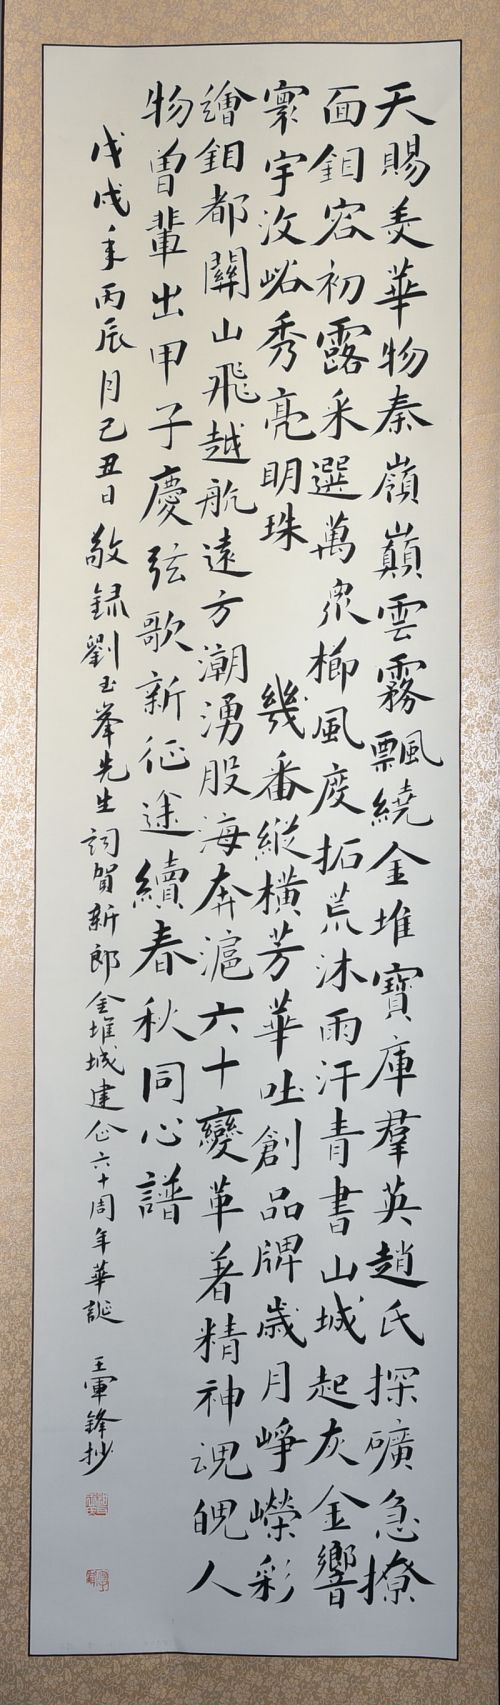 天賜美華物秦嶺巔雲霧飄繞金堆寶庫羣英趙氏探礦急撩
面鉬容初露采選萬眾櫛風度拓荒沐雨汗青書山城起灰金響
寰宇汶峪秀亮明珠 幾番縱橫芳華吐創品牌歲月崢嶸彩
繪鉬都關山飛越航遠方潮湧股海奔滬六十變革著精神魂魄人
物曾輩出甲子慶弦歌新征途續春秋同心譜
戊戌年丙辰月己丑日敬録劉玉峯先生詞賀新郎金堆城建企六十周年華誕 王軍鋒抄